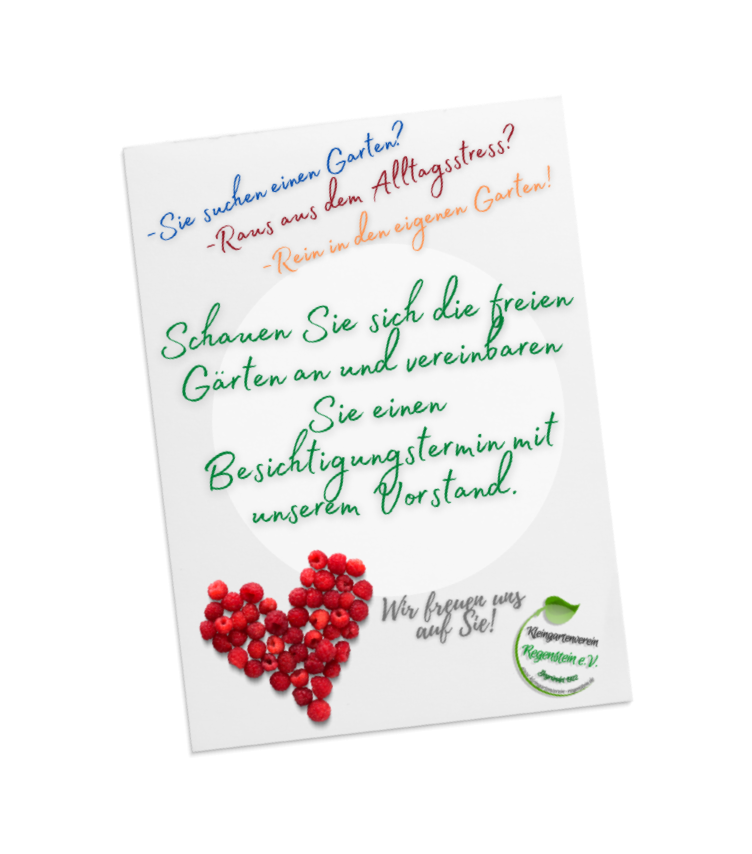 -Sie suchen einen Garten?
-Raus aus dem Alltagsstress?
-Rein in den eigenen Garten!
Schauen Sie sich die freien
Gärten an und vereinbaren
Sie einen
Besichtigungstermin mit
unserem Vorstand.
Wir freuen uns
auf Sie!
Kleingartenverein
Regenstein e.V.